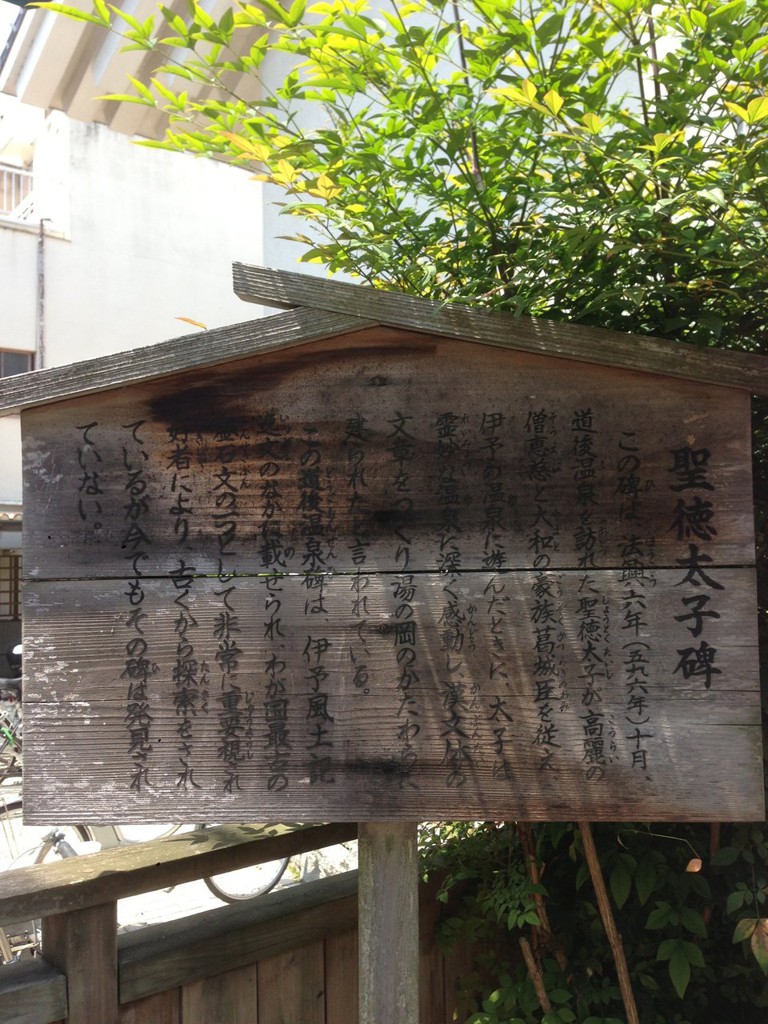 聖徳太子碑
この碑は、法興六年(五九六年)十月、
道後温泉を訪れた聖徳太子が高麗の
僧恵慈と大和の豪族葛城臣を従え、
伊予の温泉に遊んだときに、太子は
霊妙な温泉に深く感動し、漢文体の
文章をつくり湯の岡のかたわらに
建られたと言われている。
この道後温泉碑は、伊予風土記
逸文のなかに載せられ、わが国最古の
金石文の一つとして非常に重要視され
好者により、古くから探索をされ
ているが今でもその碑は発見され
ていない。